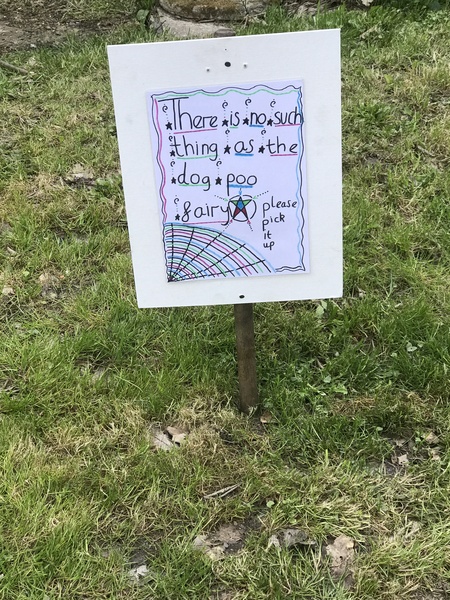 There is no such
thing as the
dog poo
fairy please
pick
it
up